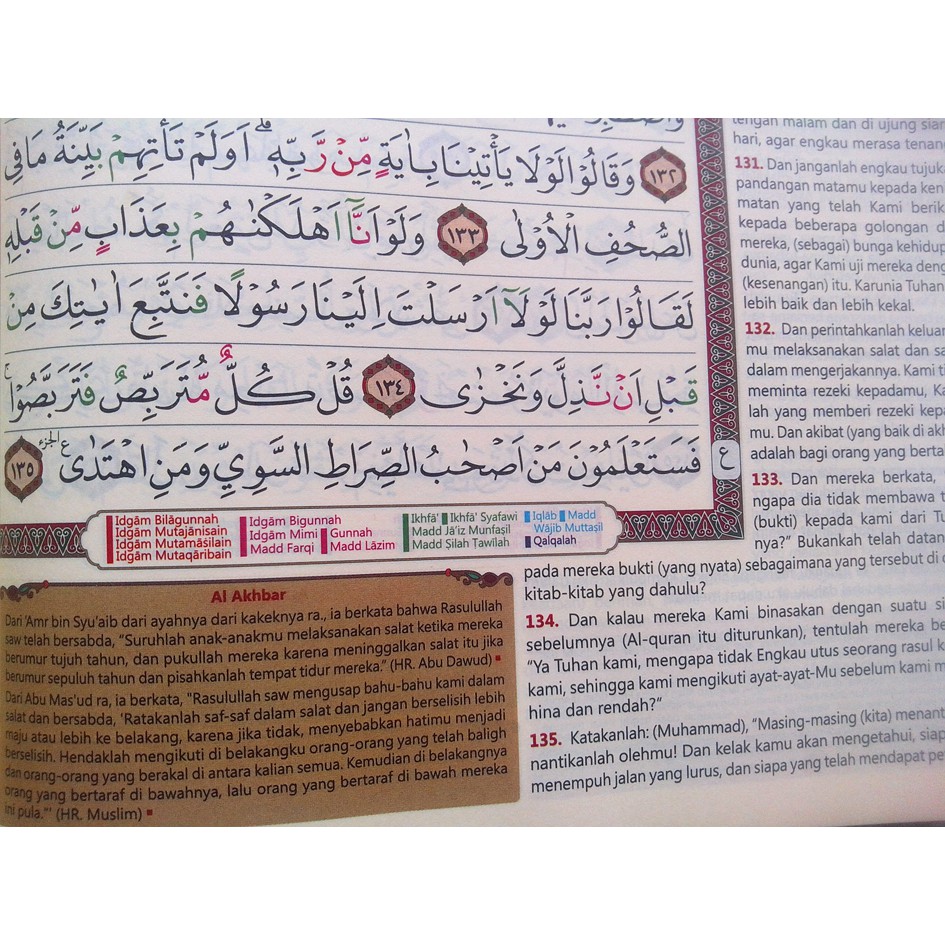 ١٣٢ وَقَالُوْا لَوْلَا يَأْتِيْنَا بِاٰيَةٍ مِّنْ رَّبِّهٖۗ اَوَلَمْ تَأْتِهِمْ بَيِّنَةُ مَا فِى
الصُّحُفِ الْاُوْلٰى ١٣٣ وَلَوْ اَنَّآ اَهْلَكْنٰهُمْ بِعَذَابٍ مِّنْ قَبْلِهٖ
لَقَالُوْا رَبَّنَا لَوْلَآ اَرْسَلْتَ اِلَيْنَا رَسُوْلًا فَنَتَّبِعَ اٰيٰتِكَ مِنْ
قَبْلِ اَنْ نَّذِلَّ وَنَخْزٰى ١٣٤ قُلْ كُلٌّ مُّتَرَبِّصٌ فَتَرَبَّصُوْاۚ
فَسَتَعْلَمُوْنَ مَنْ اَصْحٰبُ الصِّرَاطِ السَّوِيِّ وَمَنِ اهْتَدٰى ع الجزء ١٣٥
ع
Idgām Bilāgunnah
Idgām Mutajānisain
Idgām Mutamāṡilain
Idgām Mutaqāribain
Idgām Bigunnah
Idgām Mimi Gunnah
Madd Farqi Madd Lāzim
Ikhfā' Ikhfā' Syafawi
Madd Jā'iz Munfaṣil
Madd Ṣilah Ṭawīlah
Iqlāb Madd
Wājib Muttaṣil
Qalqalah
Al Akhbar
Dari 'Amr bin Syu'aib dari ayahnya dari kakeknya ra., ia berkata bahwa Rasulullah
saw telah bersabda, "Suruhlah anak-anakmu melaksanakan salat ketika mereka
berumur tujuh tahun, dan pukullah mereka karena meninggalkan salat itu jika
berumur sepuluh tahun dan pisahkanlah tempat tidur mereka." (HR. Abu Dawud)
Dari Abu Mas'ud ra, ia berkata, "Rasulullah saw mengusap bahu-bahu kami dalam
salat dan bersabda, 'Ratakanlah saf-saf dalam salat dan jangan berselisih lebih
maju atau lebih ke belakang, karena jika tidak, menyebabkan hatimu menjadi
berselisih. Hendaklah mengikuti di belakangku orang-orang yang telah baligh
dan orang-orang yang berakal di antara kalian semua. Kemudian di belakangnya
orang yang bertaraf di bawahnya, lalu orang yang bertaraf di bawah mereka
ini pula.'" (HR. Muslim)
tengah malam dan di ujung
hari, agar engkau merasa
131. Dan janganlah engkau
pandangan matamu kepada
matan yang telah Kami
kepada beberapa golongan
mereka, (sebagai) bunga
dunia, agar Kami uji mereka
(kesenangan) itu. Karunia
lebih baik dan lebih kekal.
132. Dan perintahkanlah
mu melaksanakan salat dan
dalam mengerjakannya. Kami
meminta rezeki kepadamu,
lah yang memberi rezeki
mu. Dan akibat (yang baik di
adalah bagi orang yang
133. Dan mereka berkata,
ngapa dia tidak membawa
(bukti) kepada kami dari
nya?" Bukankah telah
pada mereka bukti (yang nyata) sebagaimana yang tersebut di
kitab-kitab yang dahulu?
134. Dan kalau mereka Kami binasakan dengan suatu
sebelumnya (Al-quran itu diturunkan), tentulah mereka
"Ya Tuhan kami, mengapa tidak Engkau utus seorang rasul
kami, sehingga kami mengikuti ayat-ayat-Mu sebelum kami
hina dan rendah?"
135. Katakanlah: (Muhammad), "Masing-masing (kita)
nantikanlah olehmu! Dan kelak kamu akan mengetahui,
menempuh jalan yang lurus, dan siapa yang telah mendapat